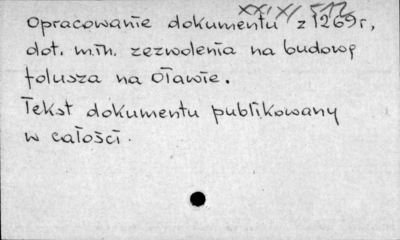 XXIX/512
Opracowanie dokumentu z 1269r,
dot. m.in. zezwolenia na budowę
folusza na Oławie.
Tekst dokumentu publikowany
w całości.